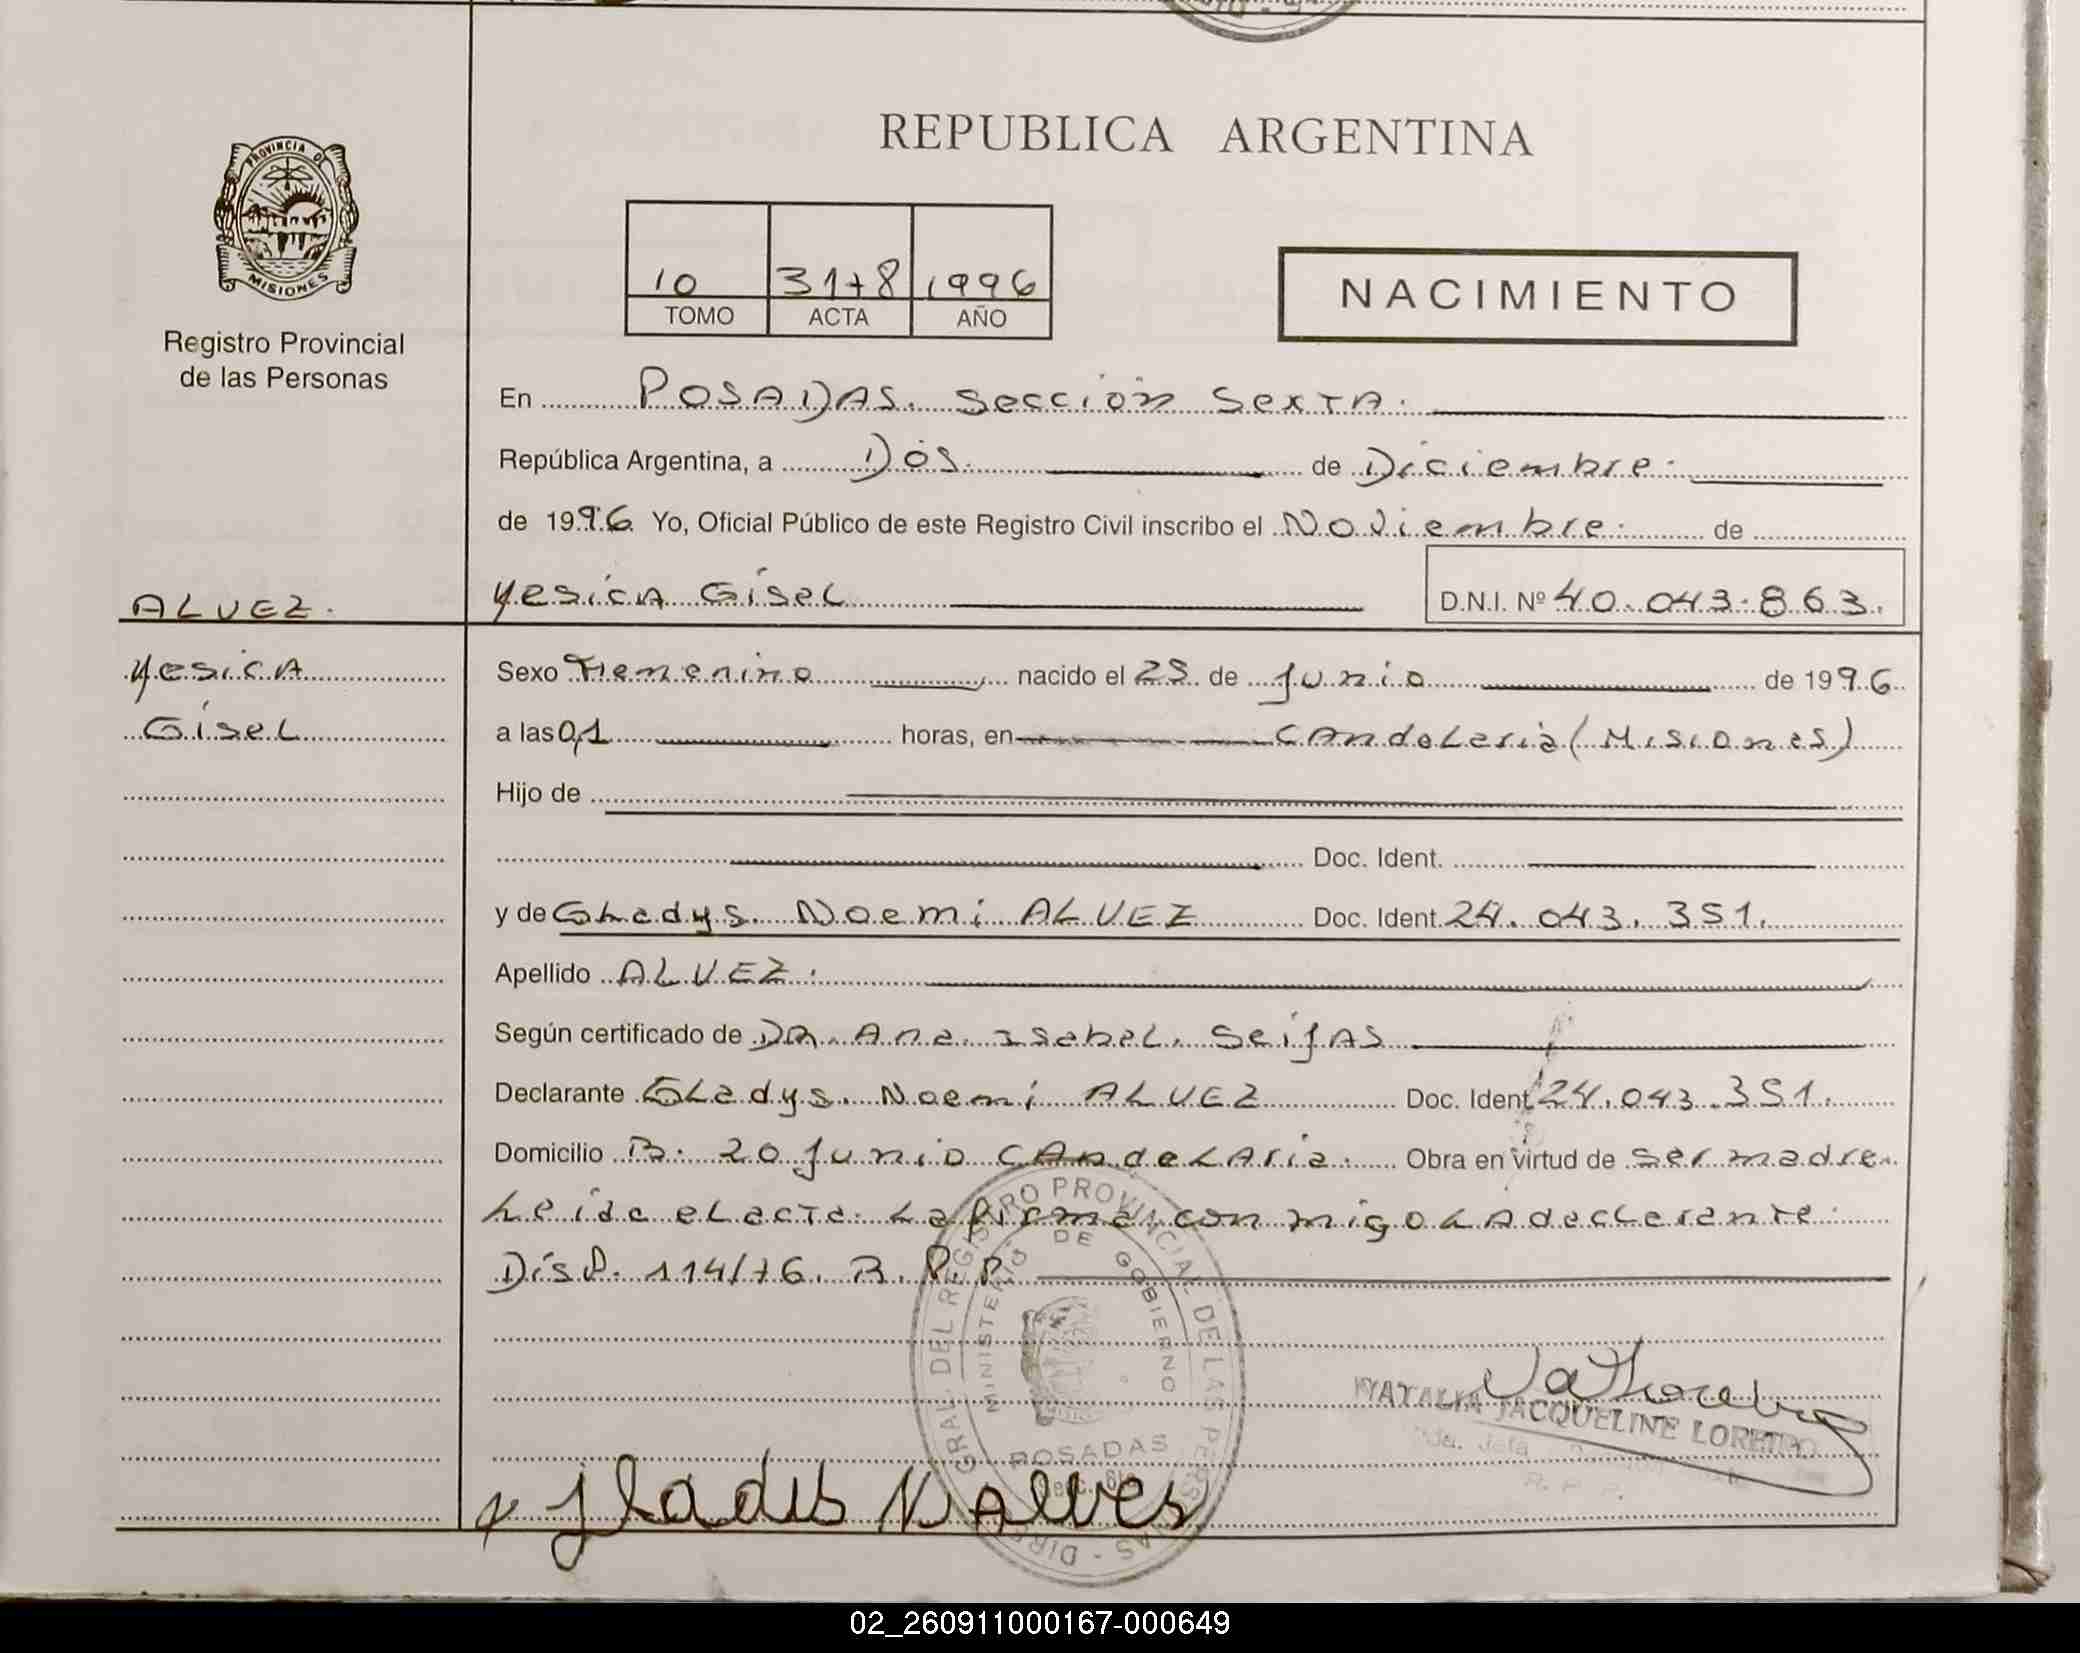 REPUBLICA ARGENTINA
PROVINCIA DE
MISIONES
Registro Provincial
de las Personas
10 3178 1996
TOMO ACTA AÑO
NACIMIENTO
En POSADAS. Sección Sexta.
República Argentina, a Dos de Diciembre.
de 1996 Yo, Oficial Público de este Registro Civil inscribo el Noviembre. de
ALVEZ.
Yesica Gisel D.N.I. Nº 40.043.863.
Yesica
Gisel
Sexo Femenino nacido el 25 de Junio de 1996
a las 01 horas, en Candelaria (Misiones)
Hijo de
Doc. Ident.
y de Gladys Noemi ALVEZ Doc. Ident. 24.043.351.
Apellido ALVEZ.
Según certificado de DRA. Ana Isabel Seijas
Declarante Gladys Noemi ALVEZ Doc. Ident 24.043.351.
Domicilio B. 20 Junio Candelaria. Obra en virtud de ser madre
Leida el acta La firma con migo La declarante.
Disp. 114/76. R.P.P.
DIREC GRAL DEL REGISTRO PROVINCIAL DE LAS PERSONAS
MINISTERIO DE GOBIERNO
POSADAS
NATALIA JACQUELINE LOREIRO
R. P. P.
x Gladis N Alves
02_260911000167-000649